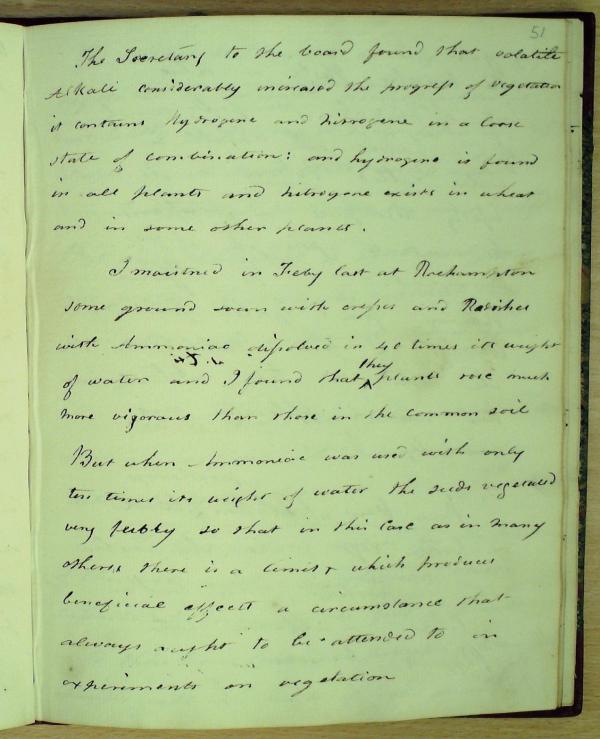 51
The Secretary to the board found that volatile
Alkali considerably increased the progress of vegetation
it contains Hydrogene and nitrogene in a loose
state of combination: and hydrogene is found
in all plants and nitrogene exists in wheat
and in some other plants.
I moistned in Feby last at Roehampton
some ground sown with cresses and Radishes
with Ammoniac dissolved in 40 times its weight
of water and I found that they plants rose much
more vigorous than those in the common soil
But when Ammoniac was used with only
ten times its weight of water the seeds vegetated
very feebly so that in this case as in many
others there is a limit which produces
beneficial effect a circumstance that
always aught to be attended to in
experiments on vegetation